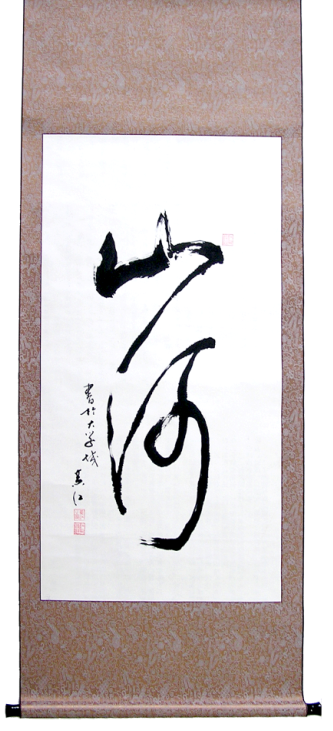 山河
書於大學城